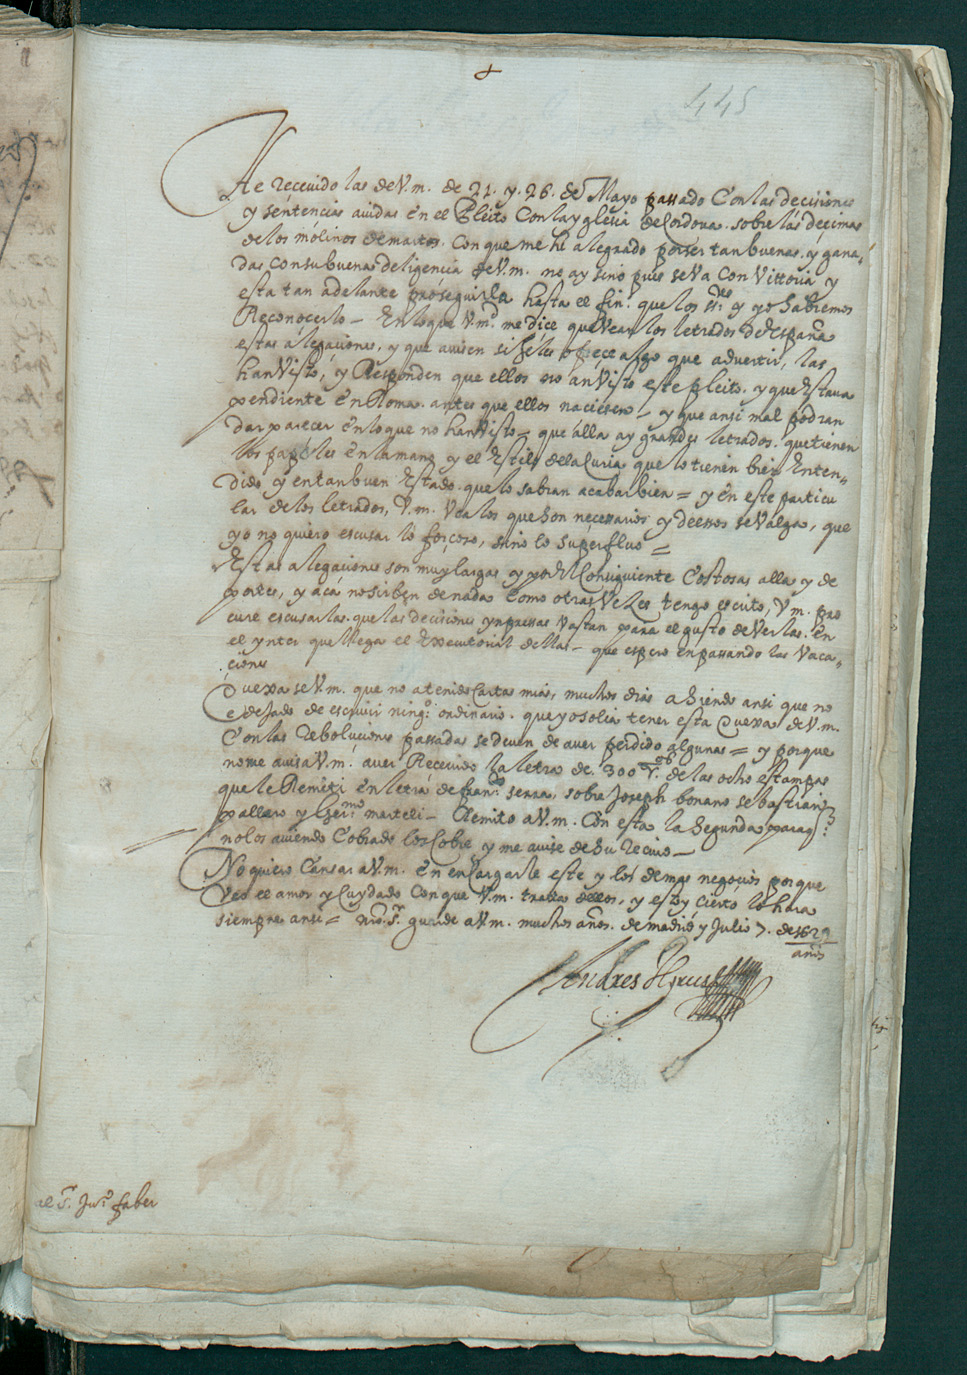 +
445
He receuido las de V.m. de 21. y. 26. de Mayo passado Con las decisiones
y sentencias auidas en el Pleito Con la yglesia de Cordoua. sobre las decimas
de los molinos de martos. con que me he alegrado por ser tan buenas. y gana,
das con su buena deligencia de V.m. no ay sino pues se Va con Vittoria y
esta tan adelante proseguirla hasta el fin. que los ss.res y yo sabremos
Reconocerlo – En lo que V.md me dice que Vean los letrados de España
estas alegaciones, y que auisen si se les ofreçe algo que aduertir, las
han Visto, y Responden que ellos no an Visto este pleito. y que Estaua
pendiente en Roma. antes que ellos naciesen – y que ansi mal podran
dar parecer en lo que no han Visto – que alla ay grandes letrados. que tienen
los papeles en la mano y el Estilo de la Curia que lo tienen bien Enten-
dido y en tan buen Estado. que lo sabran acabar bien = y en este particu
lar de los letrados, V.m. Vea los que son necessarios y de essos se Valga, que
yo no quiero escusar lo forçoso, sino lo superfluo =
Estas alegaciones son muy largas, y por el Consiguiente Costosas alla y de
portes, y acá no sirben de nada Como otras Vezes tengo escrito, V.m. pro
cure escusarlas. que las decisiones ynpressas Vastan para el gusto de Verlas. En
el ynter que llega el Executorial dellas – que espero en passando las Vaca,,
ciones
Quexase V.m. que no a tenido Cartas mias, muchos dias a siendo ansi que no
e dejado de escriuir ning.o ordinario. que yo solia tener esta Quexa de V.m.
Con las Reboluciones passadas se deuen de auer perdido algunas = y porque
no me auisa V.m. auer Receuido la letra de. 300 V.os de las ocho estampas
que le Remiti en letra de fran.co serra, sobre Joseph bonano sebastian
pallaro y Ger.mo marteli – Remito a V.m. Con esta la segunda para q̃
no los auiendo Cobrado los Cobre y me auise de su recuio –
No quiero Cansar a V.m. en enCargarle este y los demas negocios porque
Veo el amor y Cuydado con que V.m. trata dellos, y estoy cierto lo hara
siempre ansi = nro S.r guarde a V.m. muchos años. de madrid y Julio 7. de 1629
años
Andres
al S.r Ju.o faber